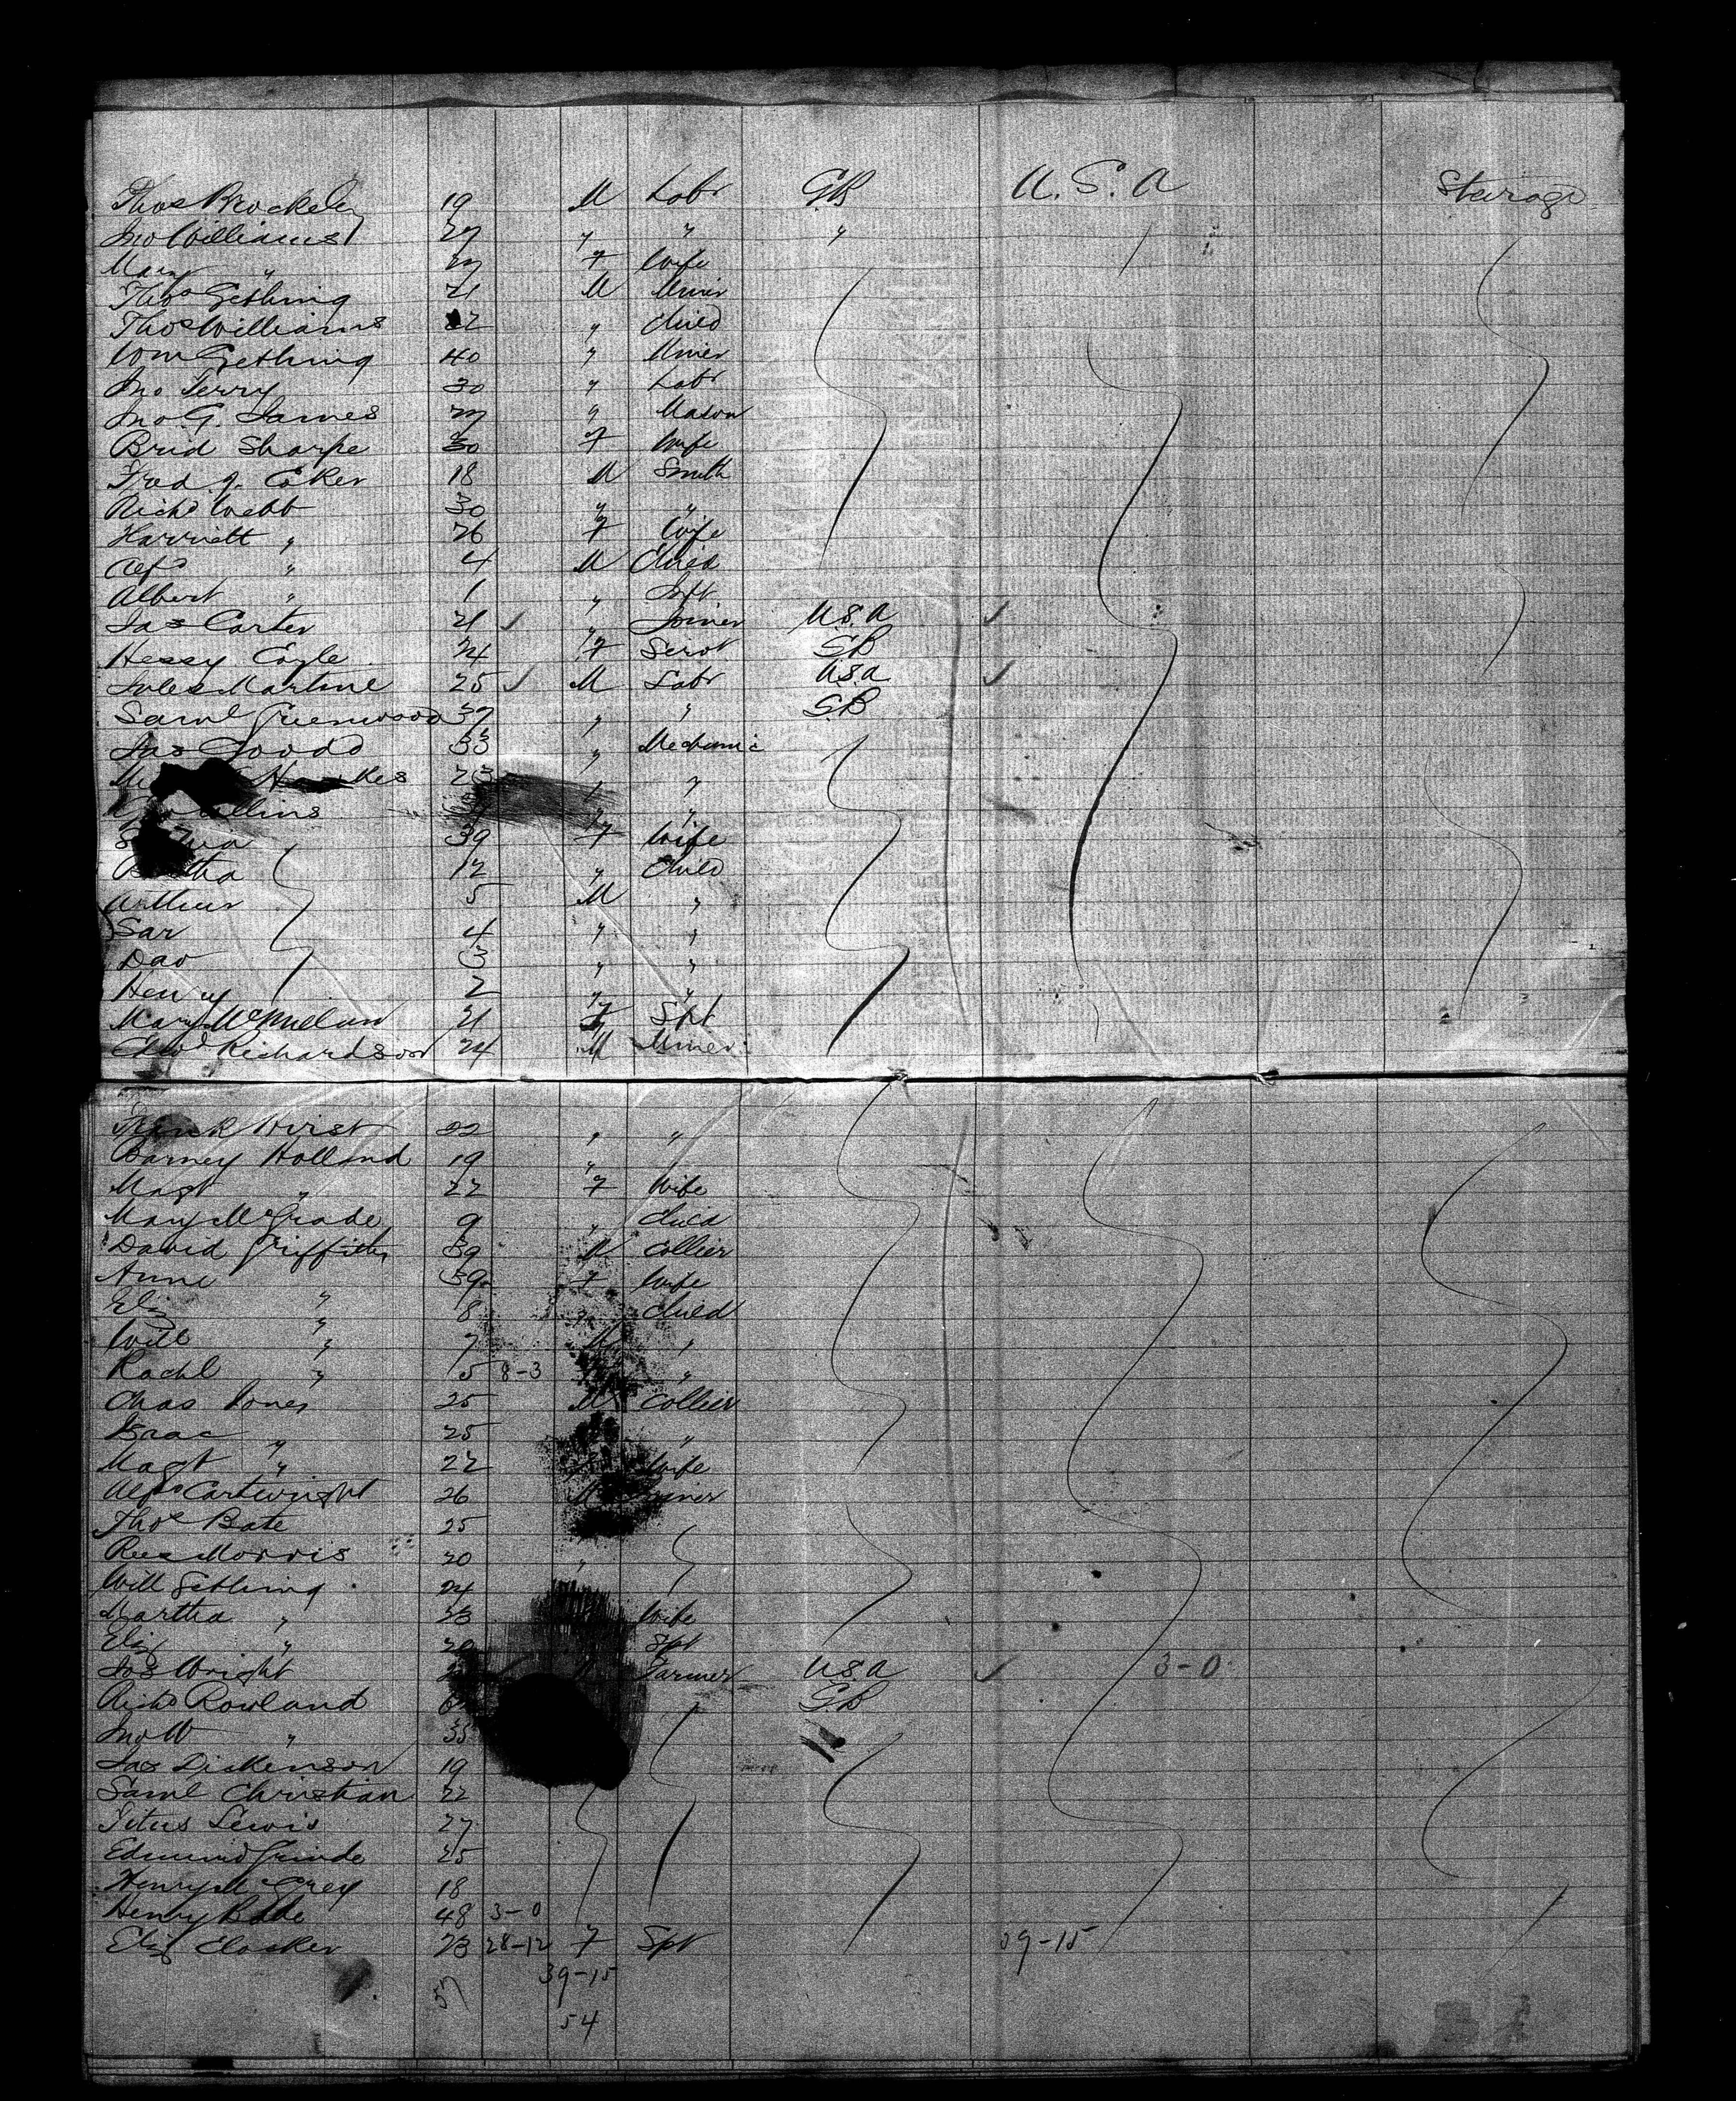 Thos Brockeley 19 M Labr G.B U.S.A Steerage
Jno Williams 27 " " "
Mary " 27 F Wife
Thos Gething 21 M Miner
Thos Williams 2 " Child
Wm Gething 40 " Miner
Jno Terry 30 " Labr
Jno G. James 27 " Mason
Brid Sharpe 30 F Wife
Fred J. Coker 18 M Smith
Richd Webb 30 " "
Harriett " 26 F Wife
Alfd " 4 M Child
Albert " 1 " Inft
Jas Carter 21 ✓ " Joiner U.S.A ✓
Hessy Coyle 24 F Servt G.B
Jules Martine 25 ✓ M Labr U.S.A ✓
Saml Greenwood 39 " " G.B
Jas Goodd 33 " Mechanic
Hawkes " "
"
39 F Wife
12 " Child
Arthur 5 M "
Sar 4 " "
Dav 3 " "
Henry 2 " "
Mary McMellan 21 F Spt
Edwd Richardson 24 M Miner
Frank Hirst 22 " "
Barney Holland 19 "
Magt " 22 F Wife
Mary McGrade 9 " Child
David Griffiths 39 M Collier
Anne 39 F Wife
Eliz " 8 " Child
Will " 7 M "
Rachl " 5 8-3 "
Chas Jones 25 M Collier
Isaac " 25 "
Magt " 22 Wife
Alfd Cartwright 26 M Miner
Thos Bate 25
Rees Morris 20 "
Will Gething 24
Martha " 23 Wife
Eliz " 20 Spt
Jos Wright ✓ Farmer U.S.A ✓ 3-0
Richd Rowland G.B
Jno W " 35
Jas Dickenson 19
Saml Christian 22
Titus Lewis 27
Edmund Grinde 25
Henry M Grey 18
Henry Bode 48 3-0
Eliz Closker 23 28-12 F Spt 39-15
57 39-15
54